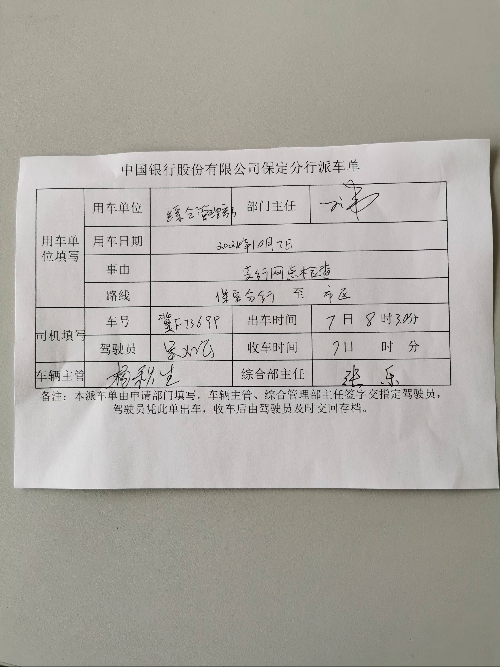 中国银行股份有限公司保定分行派车单
用车单位填写 用车单位 综合管理部 部门主任
用车日期 2024年10月7日
事由 支行网点检查
路线 保定分行 至 市区
司机填写 车号 冀F73699 出车时间 7日8时30分
驾驶员 收车时间 7日 时 分
车辆主管 杨秋生 综合部主任 张乐
备注:本派车单由申请部门填写,车辆主管、综合管理部主任签字交指定驾驶员,
驾驶员凭此单出车,收车后由驾驶员及时交回存档。